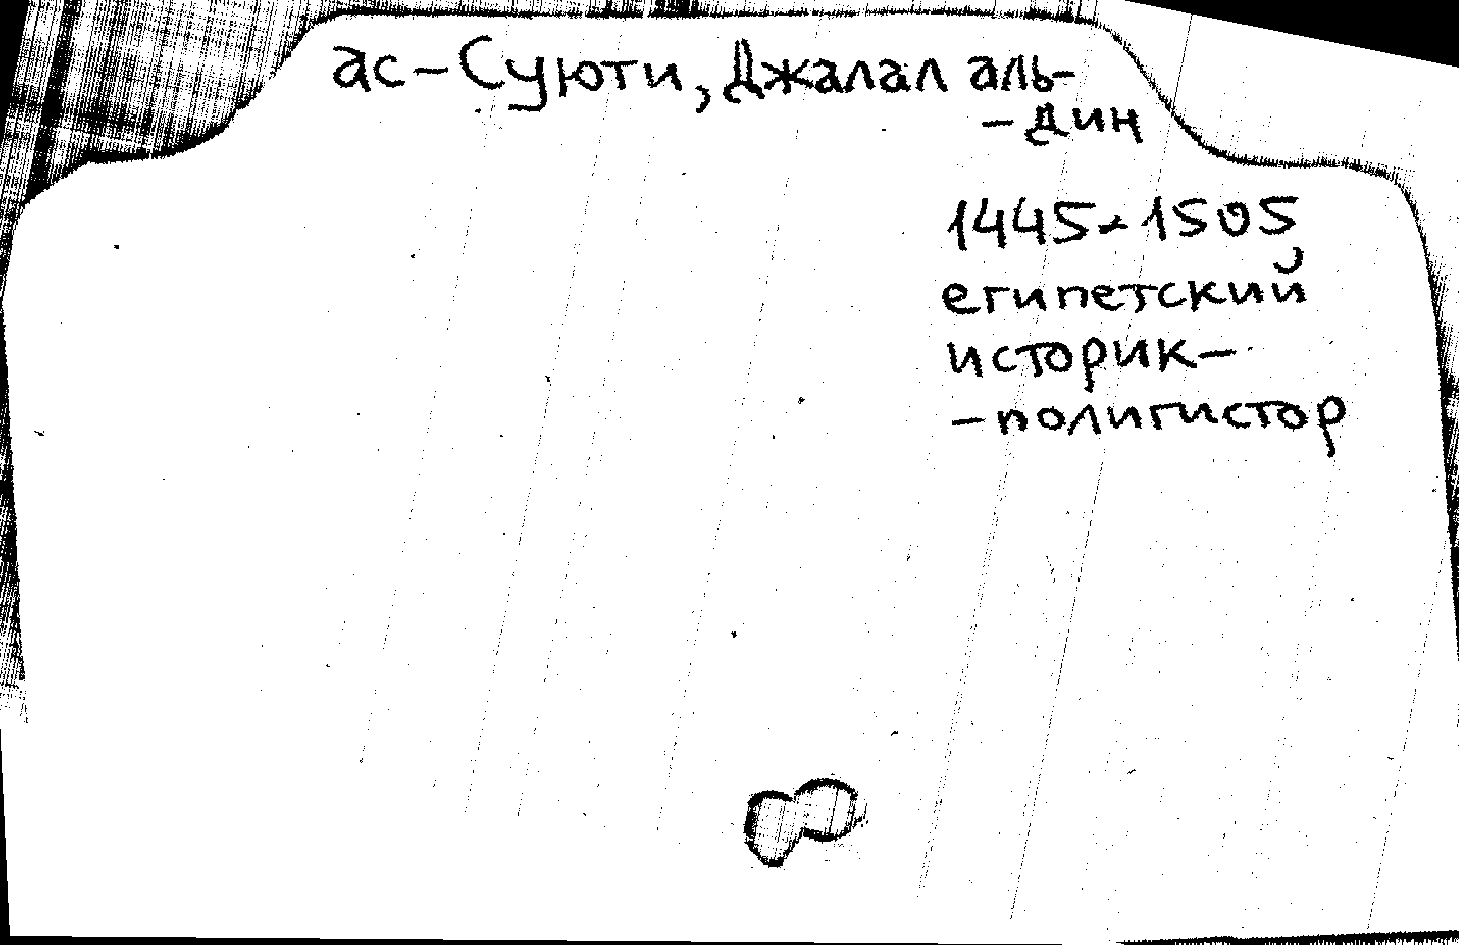 ас-Суюти, Джалал аль-
-дин
1445-1505
египетский
историк-
-полигистор